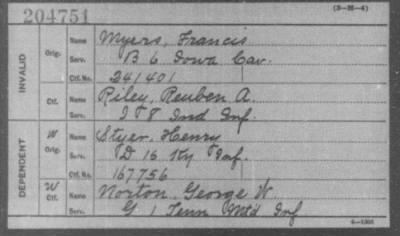 204751
(3—25—4)
INVALID
Orig. Name Myers, Francis
Serv. B 6 Iowa Cav.
Ctf. No. 241401
Ctf. Name Riley, Reuben A.
Serv. I 8 Ind Inf.
DEPENDENT
W Orig. Name Styer, Henry
Serv. D 16 Ky Inf.
Ctf. No. 167756
W Ctf. Name Norton, George W.
Serv. G 1 Tenn Mt'd Inf